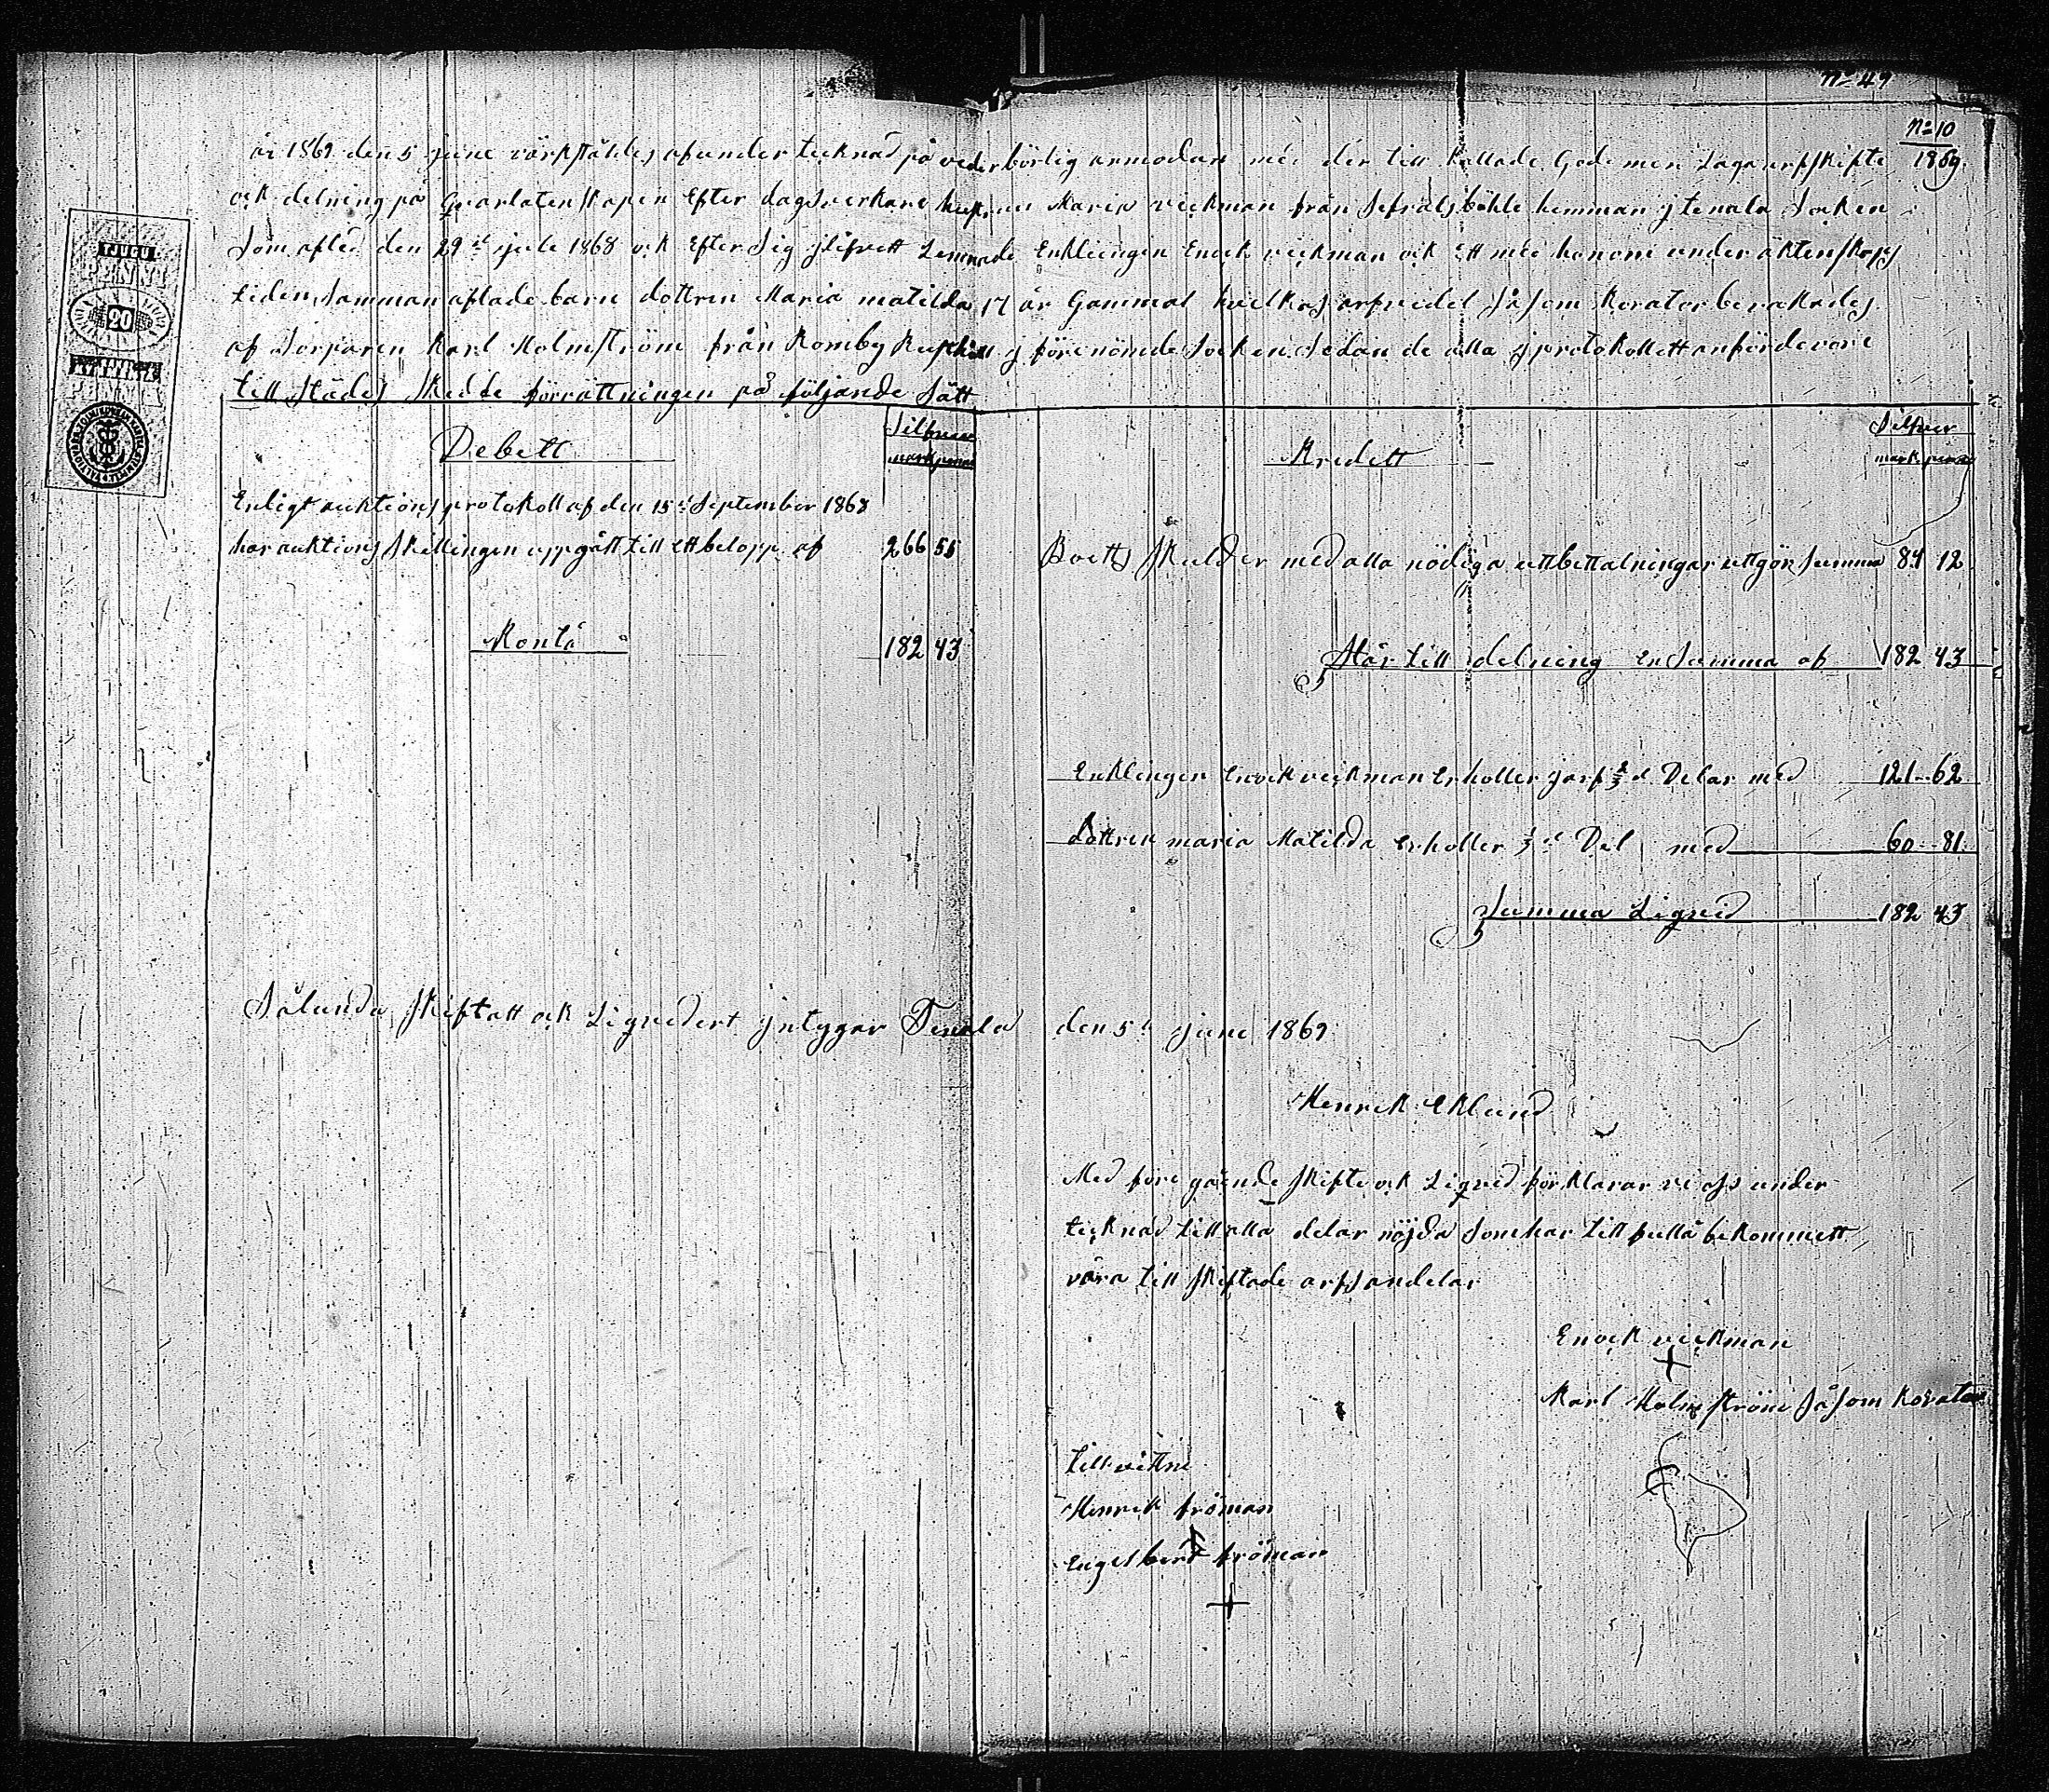 No 49
No 10
1869.
år 1869 den 5 June värkstäldes af under tecknad på vederbörlig anmodan med der till kallade Gode men Laga arfskifte
ock delning på Qvarlatenskapen Efter dagsverkare hustrun Maria vickman från Sefsalsböhle hemman j tenala Socken
Som afled den 29d jule 1868 ock Efter Sig jlifvett Lemnade Enklingen Enock vickman ock Ett med honom under äktenskaps
tiden Samman aflade barn dottren Maria matilda 17 år Gammal hvilkas arfvedel Så Som Korator bevakades
af Torparen Karl Holmström från Romby Rusthåll j förenämde Socken Sedan de alla j protokollett anförde vore
till Städes Skedde förrättningen på följande Sätt
Debett
Silfver
mark penni
Enligt auktions protokoll af den 15d September 1868
har auktions Skillingen uppgått till Ett belopp af 266 55
Kontå 182 43
Kredett
Silfver
mark penni
Boetts Skulder med alla nödiga uttbettalningar uttgör Summa 84 12
Står till delning En Summa af 182 43
Enklingen Enock vickman Erhåller j arf 2/3d Delar med 121 - 62
dottren maria Matilda Erhåller 1/3d Del med 60 - 81
Summa Liqvid 182 43
Sålunda Skiftatt ock Liqvidert jntygar Tenala den 5d june 1869
Henrik Eklund
Med före gående Skifte ock Liqvid förklarar vi oss under
tecknad till alla delar nöjda Som har till fullå bekommett
våra till Skiftade arfsandelar
Enock vickman
+
Karl Holmström Såsom Korator
till vittne
Henrik fröman
Engelbert fröman
+
TJUGU
PENNI
20